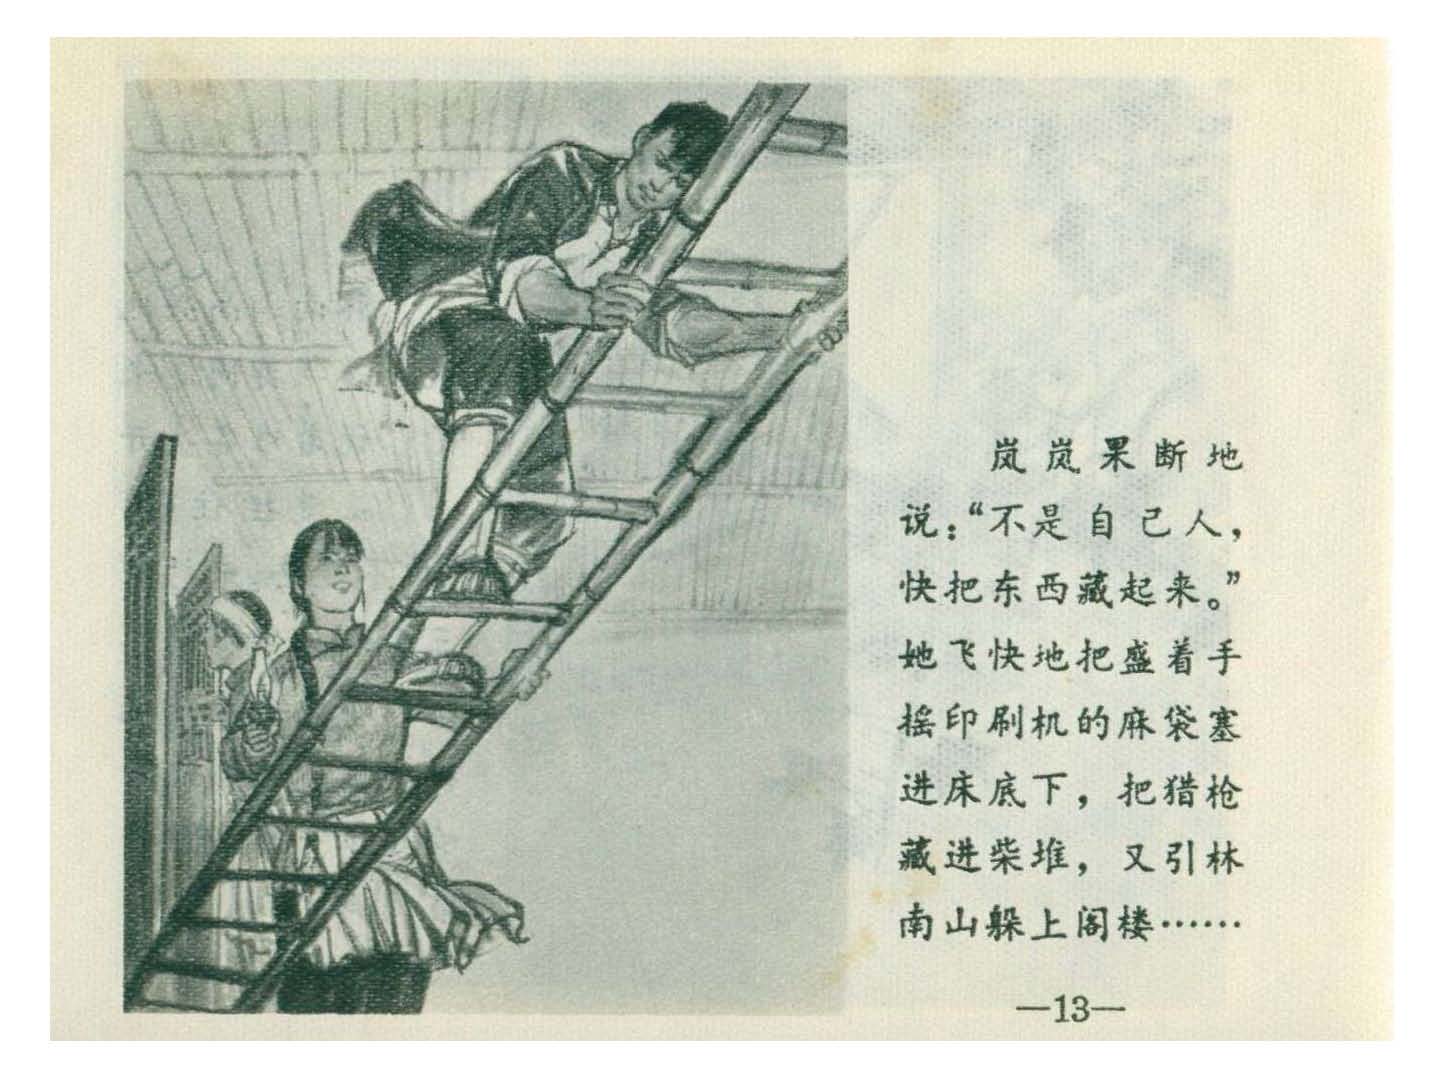 岚岚果断地
说：“不是自己人，
快把东西藏起来。”
她飞快地把盛着手
摇印刷机的麻袋塞
进床底下，把猎枪
藏进柴堆，又引林
南山躲上阁楼……
—13—